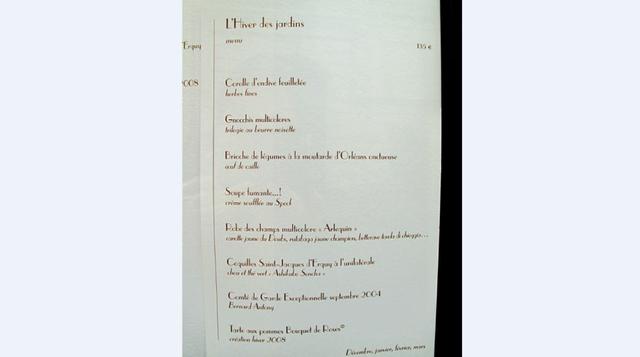 L'Hiver des jardins
menu
135 €
d'Erquy
2008
Corolle d'endive feuilletée
herbes fines
Gnocchis multicolores
trilogie au beurre noisette
Brioche de légumes à la moutarde d'Orléans onctueuse
œuf de caille
Soupe fumante...!
crème soufflée au Speck
Robe des champs multicolore « Arlequin »
carotte jaune du Doubs, rutabaga jaune champion, betterave tonda di chioggia...
Coquilles Saint-Jacques d'Erquy à l'unilatérale
chou et thé vert
Comté de Garde Exceptionnelle septembre 2004
Bernard Antony
Tarte aux pommes Bouquet de Roses©
création hiver 2008
Décembre, janvier, février, mars